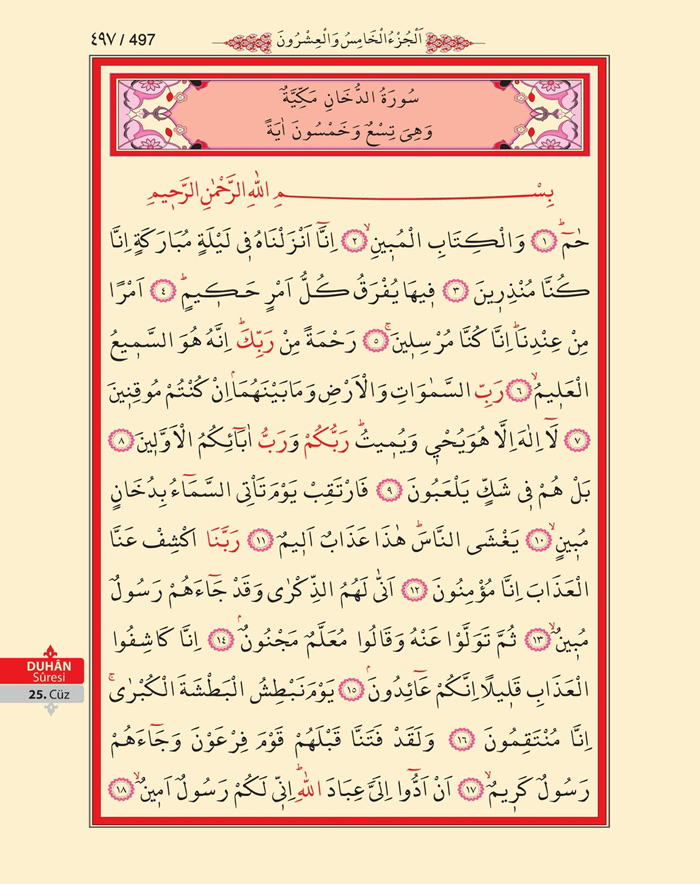 ٤٩٧ / 497
اَلْجُزْءُ الْخَامِسُ وَالْعِشْرُونَ
سُورَةُ الدُّخَانِ مَكِّيَّةٌ
وَهِىَ تِسْعٌ وَخَمْسُونَ اٰيَةً
بِسْمِ اللّٰهِ الرَّحْمٰنِ الرَّح۪يمِ
حٰمٓۜ ﴿١﴾ وَالْكِتَابِ الْمُب۪ينِۙ ﴿٢﴾ اِنَّٓا اَنْزَلْنَاهُ ف۪ى لَيْلَةٍ مُبَارَكَةٍ اِنَّا
كُنَّا مُنْذِر۪ينَ ﴿٣﴾ ف۪يهَا يُفْرَقُ كُلُّ اَمْرٍ حَك۪يمٍۜ ﴿٤﴾ اَمْرًا
مِنْ عِنْدِنَاۜ اِنَّا كُنَّا مُرْسِل۪ينَۚ ﴿٥﴾ رَحْمَةً مِنْ رَبِّكَۜ اِنَّهُ هُوَ السَّم۪يعُ
الْعَل۪يمُۙ ﴿٦﴾ رَبِّ السَّمٰوَاتِ وَالْاَرْضِ وَمَا بَيْنَهُمَاۢ اِنْ كُنْتُمْ مُوقِن۪ينَ
﴿٧﴾ لَٓا اِلٰهَ اِلَّا هُوَ يُحْي۪ وَيُم۪يتُۜ رَبُّكُمْ وَرَبُّ اٰبَٓائِكُمُ الْاَوَّل۪ينَ ﴿٨﴾
بَلْ هُمْ ف۪ى شَكٍّ يَلْعَبُونَ ﴿٩﴾ فَارْتَقِبْ يَوْمَ تَأْتِى السَّمَٓاءُ بِدُخَانٍ
مُب۪ينٍۙ ﴿١٠﴾ يَغْشَى النَّاسَۜ هٰذَا عَذَابٌ اَل۪يمٌ ﴿١١﴾ رَبَّنَا اكْشِفْ عَنَّا
الْعَذَابَ اِنَّا مُؤْمِنُونَ ﴿١٢﴾ اَنّٰى لَهُمُ الذِّكْرٰى وَقَدْ جَٓاءَهُمْ رَسُولٌ
مُب۪ينٌۙ ﴿١٣﴾ ثُمَّ تَوَلَّوْا عَنْهُ وَقَالُوا مُعَلَّمٌ مَجْنُونٌۢ ﴿١٤﴾ اِنَّا كَاشِفُوا
الْعَذَابِ قَل۪يلًا اِنَّكُمْ عَٓائِدُونَۢ ﴿١٥﴾ يَوْمَ نَبْطِشُ الْبَطْشَةَ الْكُبْرٰىۚ
اِنَّا مُنْتَقِمُونَ ﴿١٦﴾ وَلَقَدْ فَتَنَّا قَبْلَهُمْ قَوْمَ فِرْعَوْنَ وَجَٓاءَهُمْ
رَسُولٌ كَر۪يمٌۙ ﴿١٧﴾ اَنْ اَدُّٓوا اِلَىَّ عِبَادَ اللّٰهِۜ اِنّ۪ى لَكُمْ رَسُولٌ اَم۪ينٌۙ ﴿١٨﴾
DUHÂN
Sûresi
25. Cüz